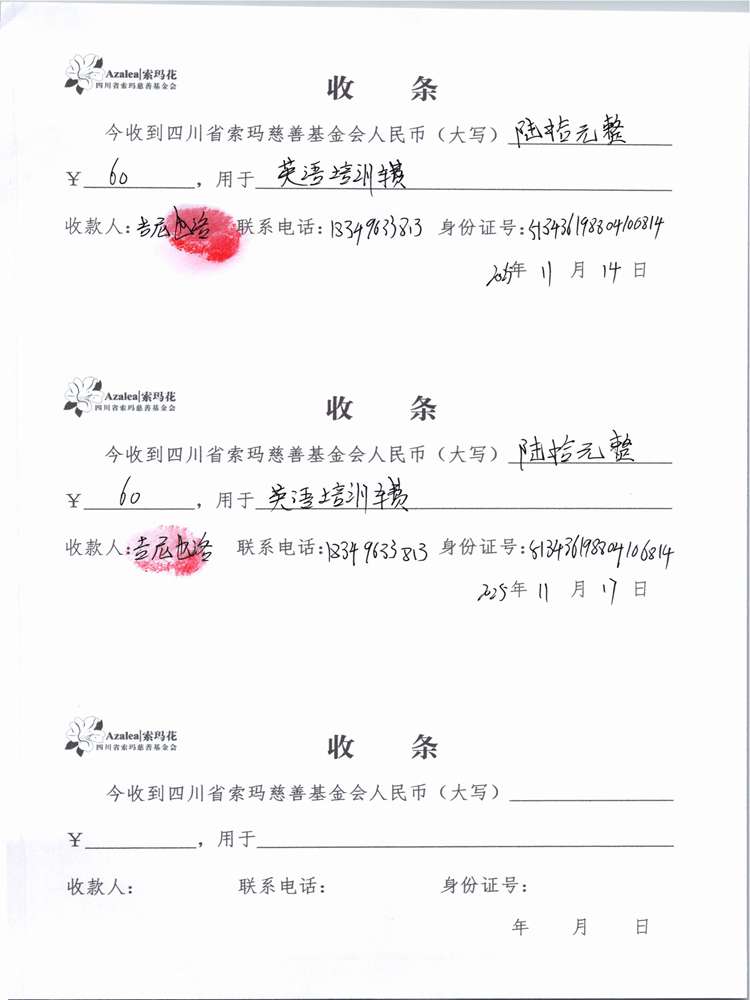 Azalea|索玛花
四川省索玛慈善基金会
收 条
今收到四川省索玛慈善基金会人民币（大写）陆拾元整
￥60，用于英语培训
收款人：吉尼也洛 联系电话：13349633813 身份证号：513436198804106814
2025年 11 月 14 日
Azalea|索玛花
四川省索玛慈善基金会
收 条
今收到四川省索玛慈善基金会人民币（大写）陆拾元整
￥60，用于英语培训
收款人：吉尼也洛 联系电话：13349633813 身份证号：513436198804106814
2025年 11 月 17 日
Azalea|索玛花
四川省索玛慈善基金会
收 条
今收到四川省索玛慈善基金会人民币（大写）
￥，用于
收款人： 联系电话： 身份证号：
年 月 日